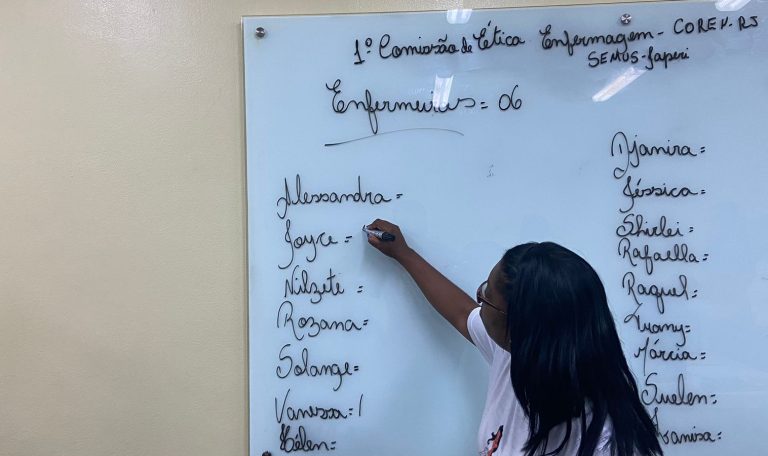 1º Comissão de Ética Enfermagem - COREN-RJ
SEMUS-Japeri
Enfermeiros = 06
Alessandra =
Joyce =
Nilzete :
Rozana=
Solange=
Vanessa= /
Hélen=
Djanira=
Jéssica=
Shirlei =
Rafaella=
Raquel=
Márcia =
Suelen=